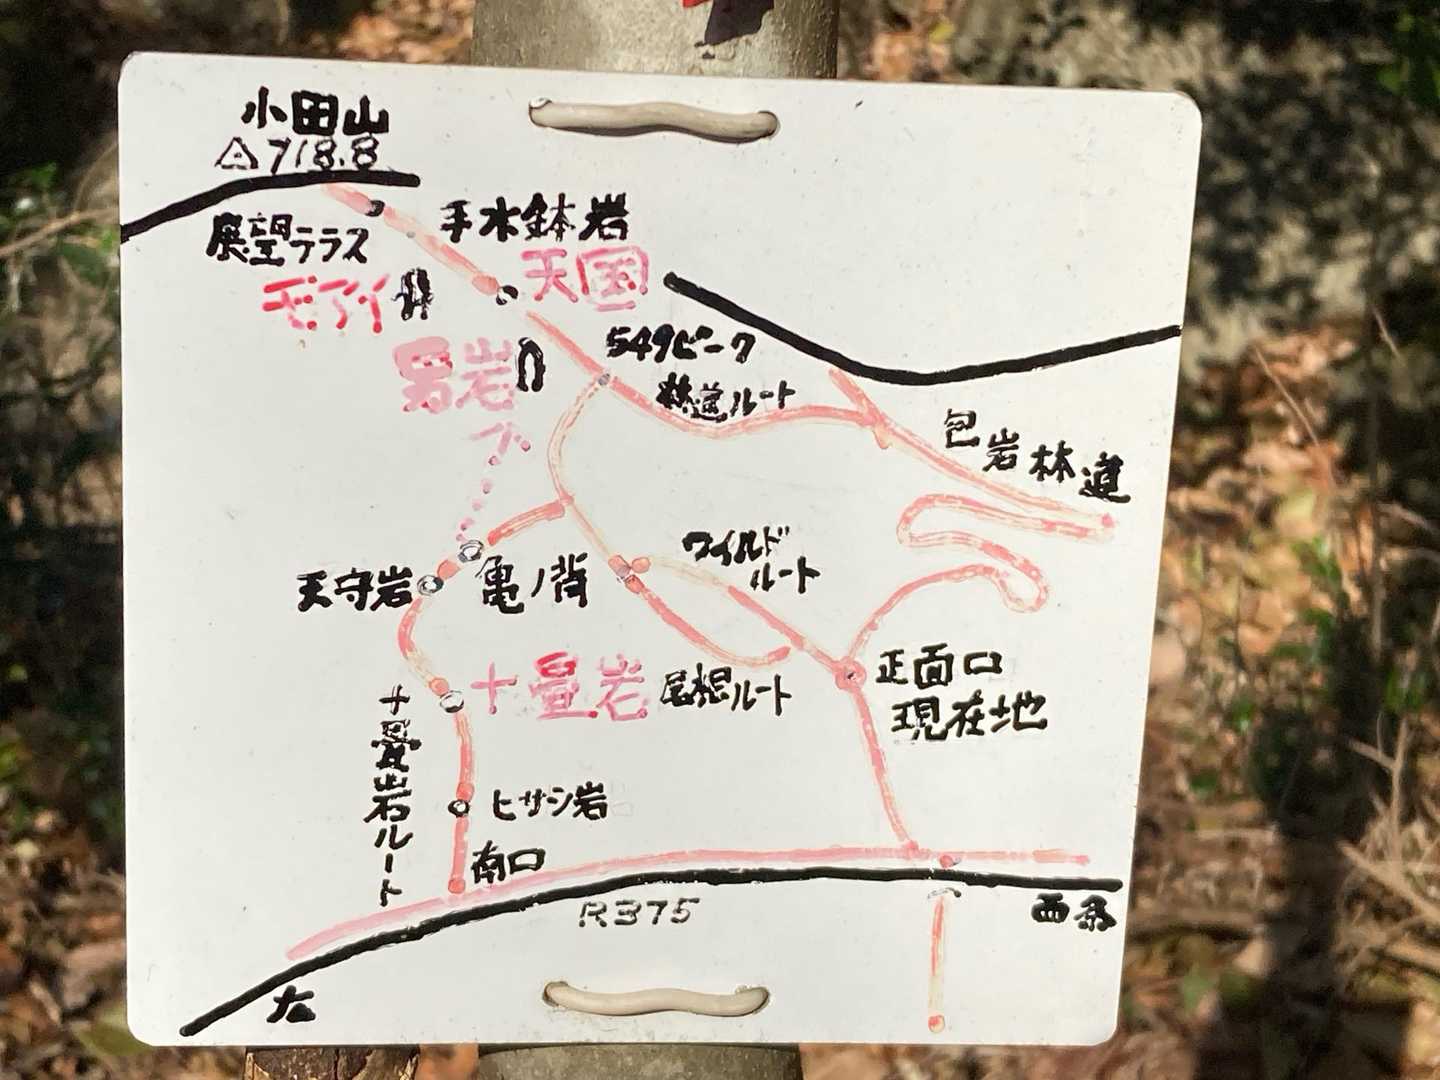 小田山
718.8
展望テラス
手水鉢岩
天国
モアイ
男岩
549ピーク
林道ルート
包岩林道
ワイルド
ルート
天守岩
亀ノ背
十畳岩
尾根ルート
正面口
現在地
十畳岩ルート
ヒサシ岩
南口
R375
西条